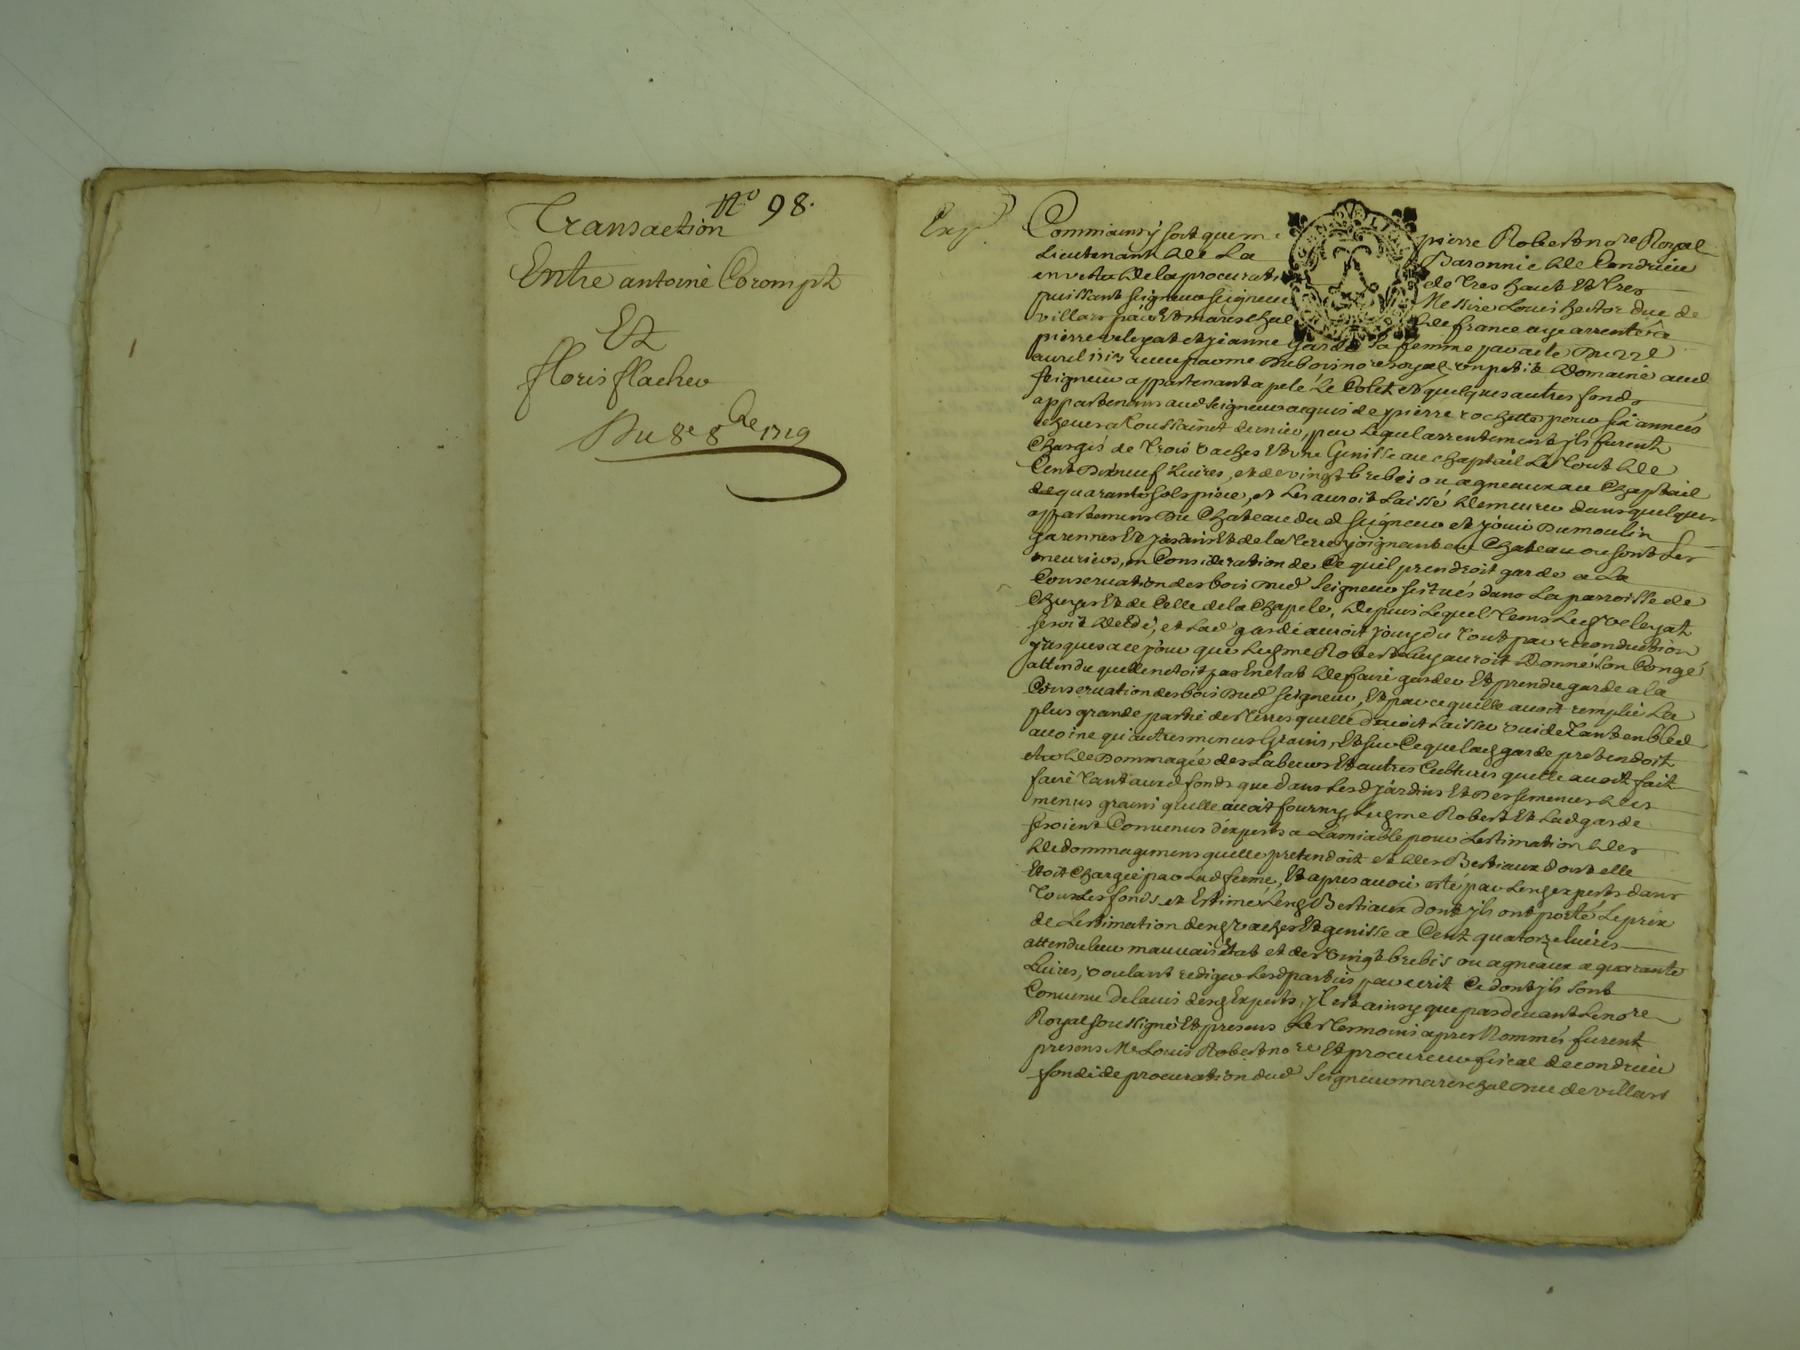 Nº 98.
Transaction
Entre antoine Corompt
Et
floris flacheu
Du 8e 8bre 1719
Exp
Commainsy soit que me pierre Robert nore Royal
Lieutenant de La Baronnie de Condrieu
en vertu de la procurati de Tres haut Et Tres
puissant seigneur seigneur Messire Louis hector duc de
villars pair Et mareschal de france aye arrenté a
pierre veleyat et jeanne garde sa femme par acte du 22e
avril receu par me Dubois nore royal, un petit domaine aud
seigneur appartenant apelé Le Colet et quelques autres fonds
appartenans aud seigneur acquis de pierre rochette pour six années
echeues a Toussainct dernier, par Lequel arrentement ils furent
Chargés de Trois vaches Et une Genisse au chaptail Le tout de
Cent Dixneuf Livres, et de vingt brebis ou agneaux au Chaptail
de quarante sols piece, et Les auroit Laissé demeurer dans quelques
appartemens Du Chateau dud seigneur et jouir Du moulin
garennes Et jardins Et de la Terre joignant au Chateau ou sont Les
meuriers, en Consideration de Ce quil prendroit garde a La
Conservation des bois dud seigneur scitués dans La parroisse de
Chuyes Et de Celle de la Chapele, Depuis Lequel Tems Led veleyat
seroit decedé, et Lad garde auroit jouy du Tout par reconduction
jusques a ce jour que Led me Robert Luy auroit Donné son Congé
attendu quelle netoit pas En etat de faire garder Et prendre garde a la
Conservation des bois dud seigneur, Et par ce quelle avoit remplie La
plus grande partie des Terres quelle devoit Laisser vuide Tant en bled
avoine qu'autres menus Grains, Et sur Ce que lad garde pretendoit
etre dedommagée des Labeurs Et autres Cultures quelle avoit fait
faire Tant auxd fonds que dans Lesd jardins Et des semences des
menus grains quelle avoit fourny, Led me Robert Et Lad garde
seroient Convenus d'experts a Lamiable pour Lestimation des
dedommagemens quelle pretendoit et des Bestiaux dont elle
Etoit Chargée par Lad ferme, Et apres avoir esté par Lesd experts dans
Tous Les fonds et Estimé Lesd Bestiaux dont ils ont porté Le prix
de Lestimation desd vaches Et genisse a Cent quatorze livres
attendu leur mauvais Etat et des vingt brebis ou agneaux a quarante
Livres, voulant rediger Lesd parties par ecrit Ce dont ils sont
Convenu De lavis desd Experts, il est ainsy que pardevant Le nore
Royal soussigné Et presens Les Temoins apres Nommés furent
presens Me Louis Robert nore Et procureur fiscal de condrieu
fondé de procuration dud seigneur mareschal Duc de villars